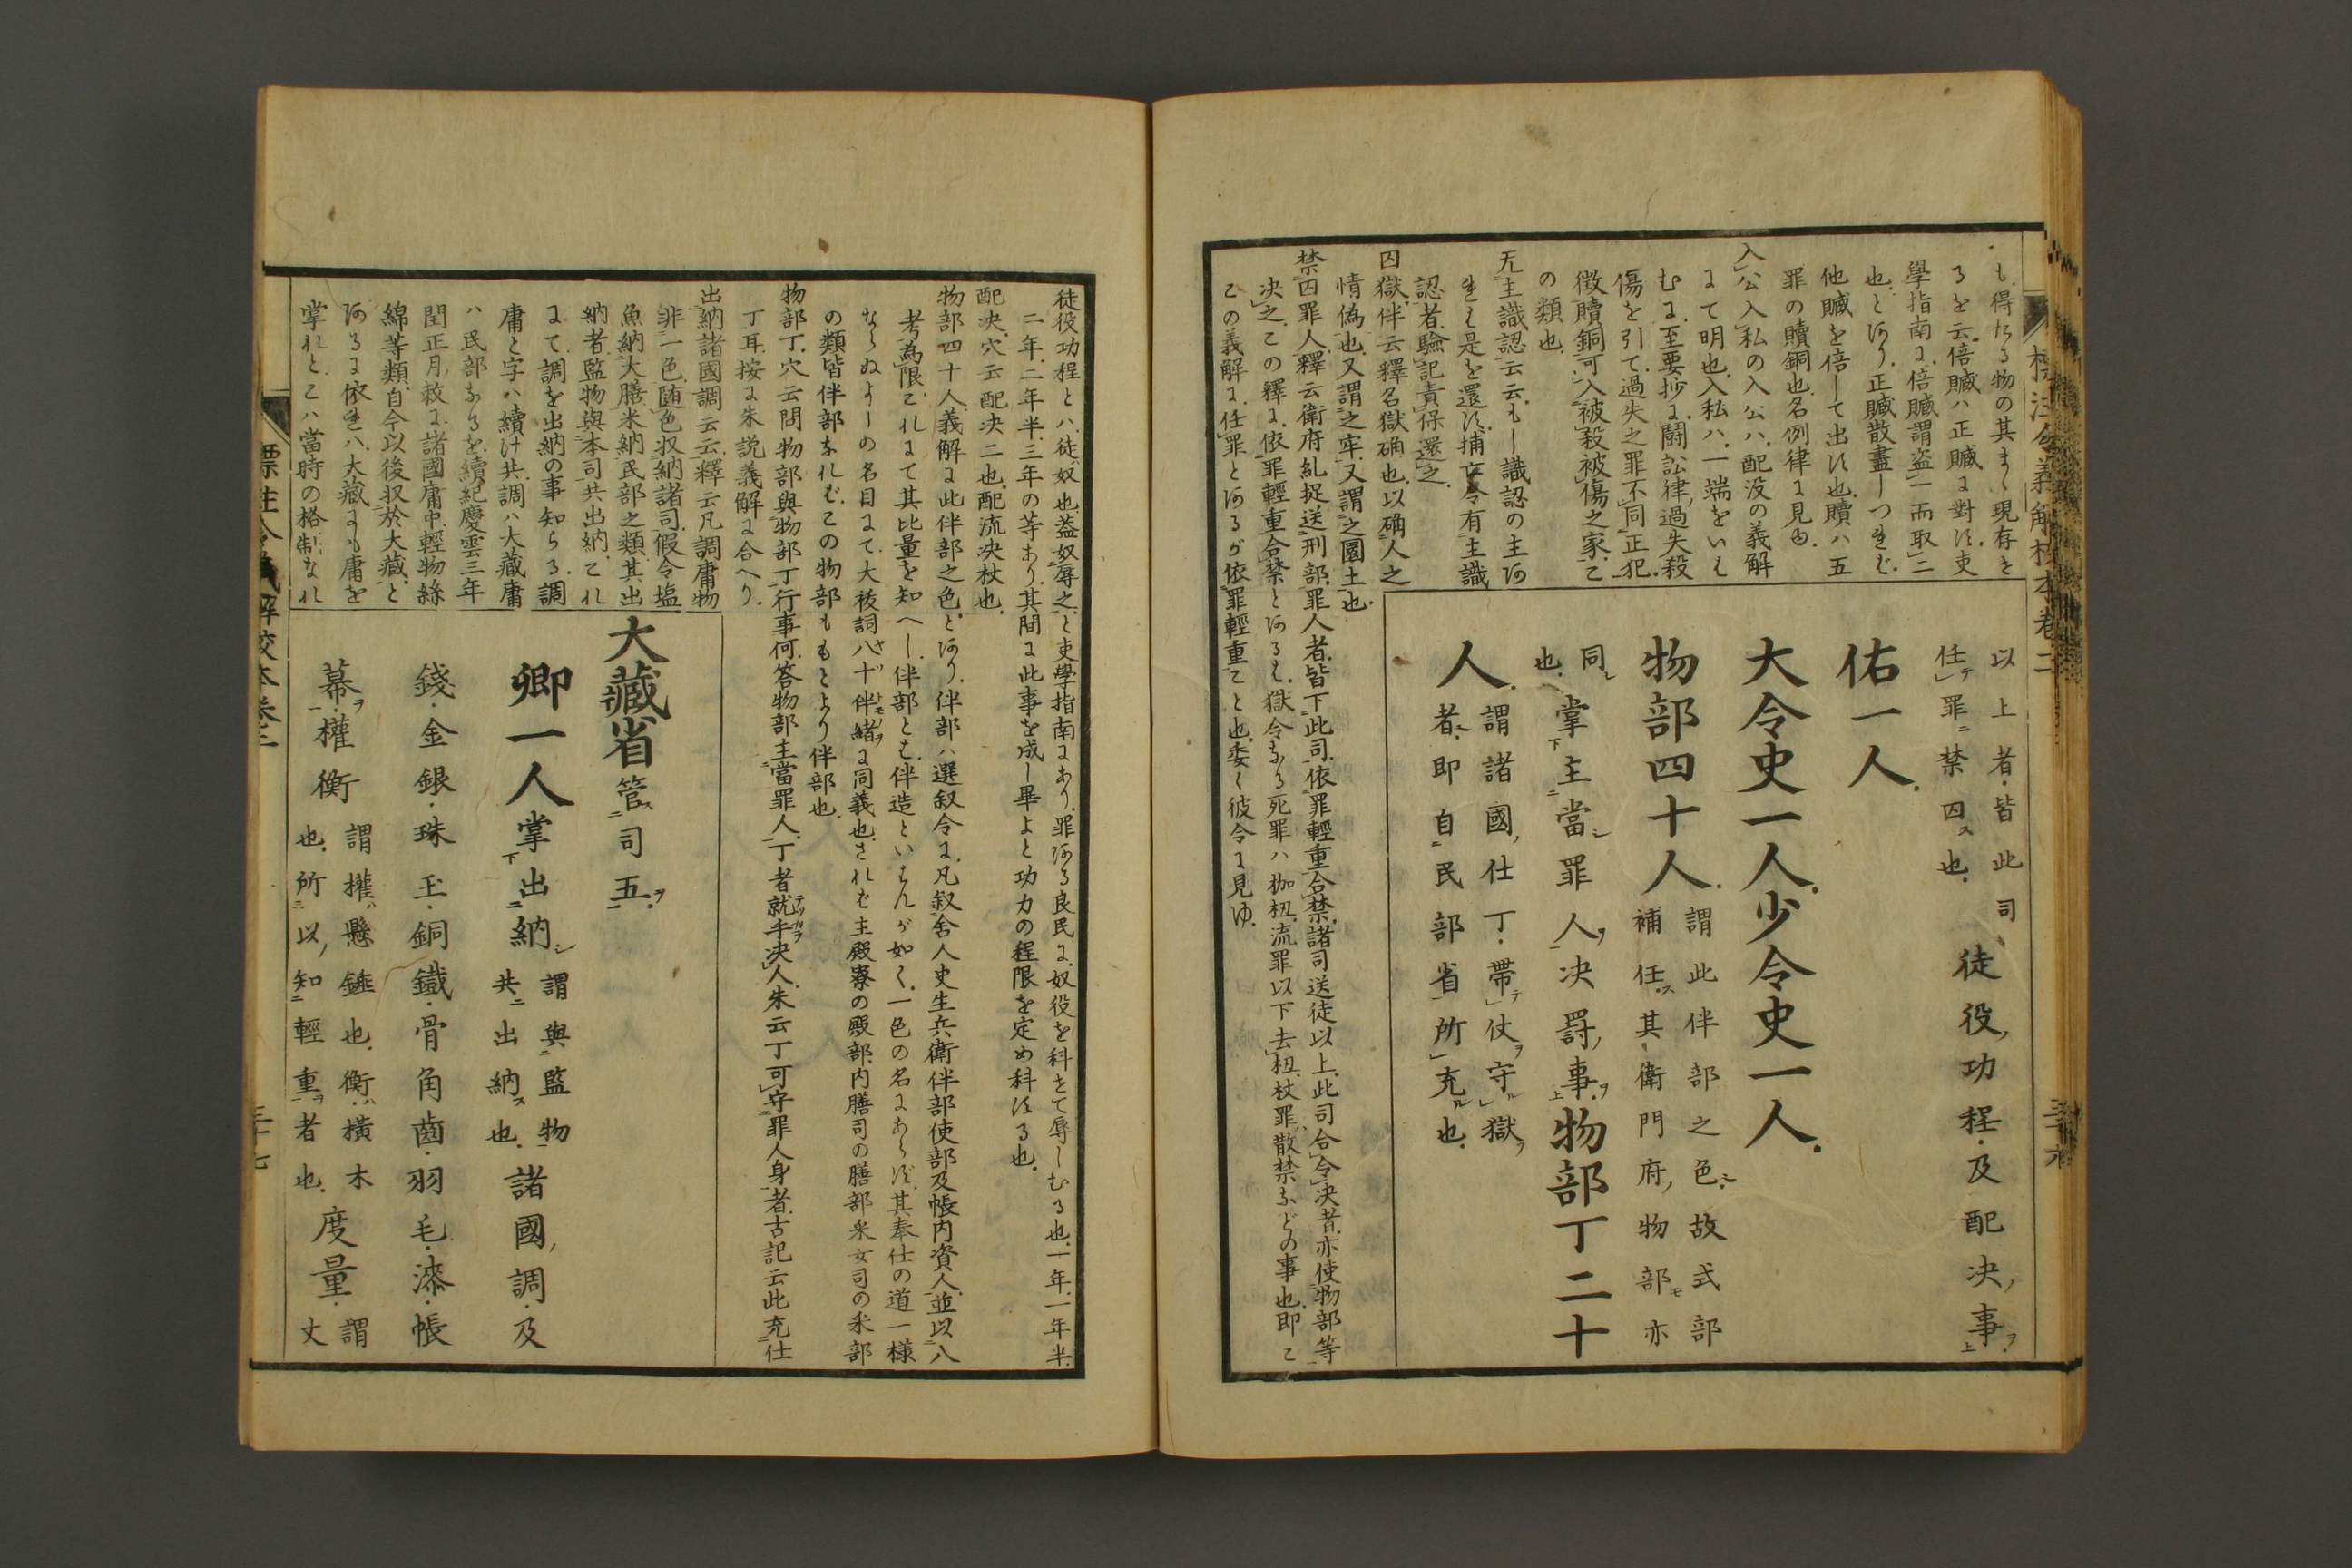 標注令義解校本卷二
も得たる物の其まゝ現存を
るを云、倍贓ハ正贓に對す、吏
學指南に、倍贓謂盗一而取二
也、とあり、正贓散盡しつれど
他贓を倍して出す也、贖ハ五
罪の贖銅也、名例律に見ゆ
入公入私の入公ハ、配没の義解
にて明也、入私ハ、一端をいは
むに、至要抄に、鬪訟律、過失殺
傷を引て、過失之罪不同正犯、
徴贖銅可入被殺被傷之家、こ
の類也、
无主識認云云、もし識認の主あ
れは是を還す、捕亡令有主識
認者、驗記責保還之、
囚獄、伴云釋名獄确也、以确人之
情偽也、又謂之牢、又謂之圜土也、
禁囚罪人、釋云衛府糺捉送刑部、罪人者、皆下此司、依罪輕重合禁、諸司送徒以上、此司合令决者、亦使物部等
决之、この釋に、依罪輕重合禁とあるは、獄令なる死罪ハ枷杻、流罪以下去杻、杖罪ハ散禁などの事也、即こ
この義解に、任罪とあるが依罪輕重こと也、委く彼令に見ゆ、
以上者、皆此司
任罪禁囚也、
徒役、功程、及配决、事、
佑一人、
大令史一人、少令史一人、
物部四十人、
謂此伴部之色、故式部
補任、其衛門府、物部亦
同
也、
掌主當罪人、决罰、事、物部丁二十
人、
謂諸國、仕丁、帶仗守獄
者、即自民部省所充也、
徒役功程とハ、徒奴也、蓋奴辱之、と吏學指南にあり、罪ある良民に、奴役を科せて辱しむる也、一年、一年半、
二年、二年半、三年の等あり、其間に此事を成し畢よと功力の程限を定め科する也、
配决、穴云配决二也、配流决杖也、
物部四十人、義解に此伴部之色、とあり、伴部ハ選叙令に、凡叙舍人史生兵衛伴部使部及帳内資人、並以八
考為限、これにて其比量を知へし、伴部とは、伴造といはんが如く、一色の名にあらず、其奉仕の道一様
ならぬよしの名目にて、大祓詞八十伴緒に同義也、されど主殿寮の殿部、内膳司の膳部、采女司の采部
の類皆伴部なれど、この物部ももとより伴部也、
物部丁、穴云問物部與物部丁行事何、答物部主當罪人、丁者就手决人、朱云丁可守罪人身者、古記云此充仕
丁耳、按に朱説義解に合へり、
出納諸國調云云、釋云凡調庸物
非一色、随色収納諸司、假令塩
魚納大膳、米納民部之類、其出
納者、監物與本司共出納、これ
にて調を出納の事知らる、調
庸と字ハ續け共、調ハ大藏、庸
ハ民部なるを、續紀慶雲三年
閏正月、敕に、諸國庸中、輕物絲
綿等類、自今以後収於大藏、と
あるに依れハ、大藏にも庸を
掌れと、こハ當時の格制なれ
大藏省管司五、
卿一人掌出納
謂與監物
共出納也、
諸國、調、及
錢、金銀、珠玉、銅鐵、骨角齒、羽毛、漆、帳
幕、權衡
謂權懸錘也、衡横木
也、所以知輕重者也、
度量、
謂
丈
標注令義解校本卷二
三十七